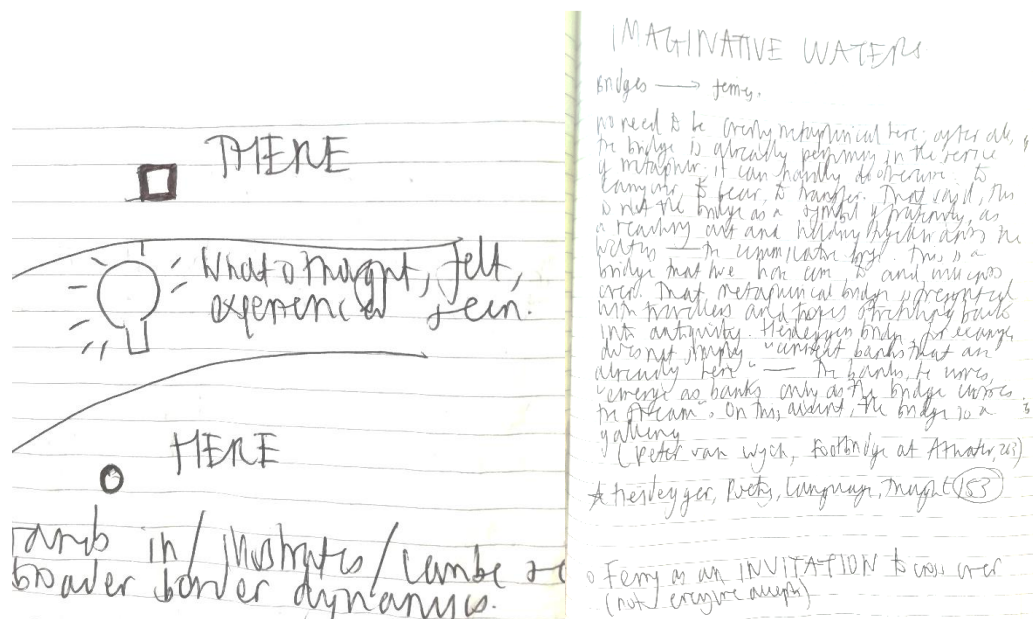 THERE
What is thought, felt,
experienced seen.
HERE
in/illustrates/can be
broader border dynamics.
IMAGINATIVE WATERS
Bridges → ferries.
no need to be overly metaphorical here: after all,
the bridge is already performing in the service
of metaphor: it can hardly do otherwise: to
carry over, to bear, to transfer. That said, this
is not the bridge as a symbol of fraternity, as
a reaching out and holding together across the
waters — the communicative first. This is a
bridge that we have come to and will cross
over. That metaphorical bridge is
with travellers and tropes stretching back
into antiquity. Heidegger's bridge, for example,
does not simply "connect banks that are
already here" — the banks, he writes,
"emerge as banks only as the bridge crosses
the stream". On this account, the bridge is a
gallery
(Peter van Wyck, Footbridge at Atwater, 263)
★ Heidegger, Poetry, Language, Thought 153
o Ferry as an INVITATION to cross over
(not everyone accepts)